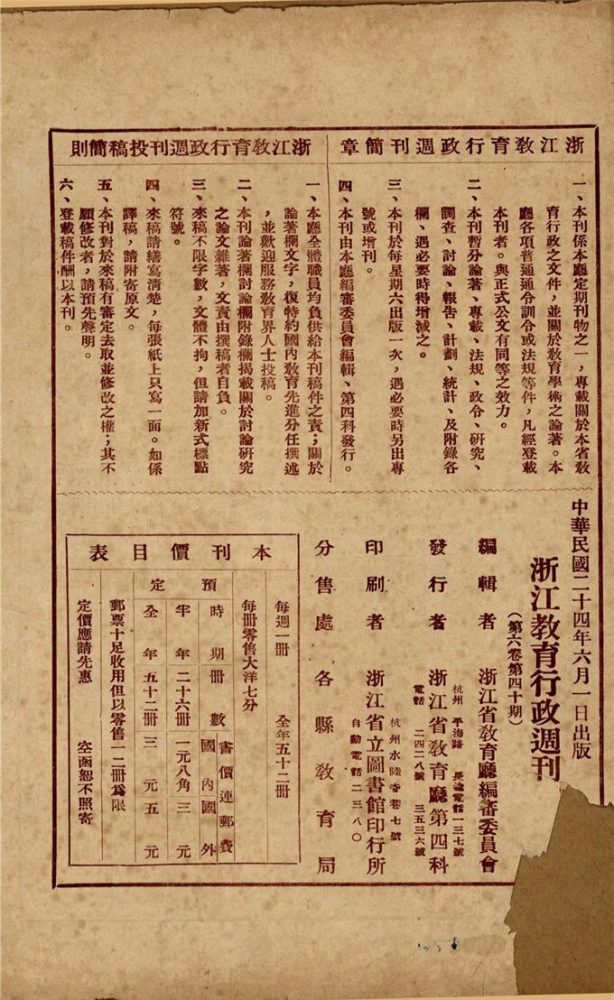 浙江教育行政週刊簡章
一、本刊係本廳定期刊物之一，專載關於本省教
育行政之文件，並關於教育學術之論著。本
廳各項普通通令訓令或法規等件，凡經登載
本刊者。與正式公文有同等之效力。
二、本刊暫分論著、專載、法規、政令、研究、
調查、討論、報告、計劃、統計、及附錄各
欄、遇必要時得增減之。
三、本刊於每星期六出版一次，遇必要時另出專
號或增刊。
四、本刊由本廳編審委員會編輯、第四科發行。
浙江教育行政週刊投稿簡則
一、本廳全體職員均負供給本刊稿件之責；關於
論著欄文字，復特約國內教育先進分任撰述
，並歡迎服務教育界人士投稿。
二、本刊論著欄討論欄附錄欄揭載關於討論研究
之論文雜著，文責由撰稿者自負。
三、來稿不限字數，文體不拘，但請加新式標點
符號。
四、來稿請繕寫清楚，每張紙上只寫一面。如係
譯稿，請附寄原文。
五、本刊對於來稿有審定去取並修改之權；其不
願修改者，請預先聲明。
六、登載稿件酬以本刊。
中華民國二十四年六月一日出版
浙江教育行政週刊
（第六卷第四十期）
編輯者 浙江省教育廳編審委員會
杭州 平海路 長途電話一三七號
發行者 浙江省教育廳第四科
電話 二四二八號 三五三六號
杭州水陸寺巷七號
印刷者 浙江省立圖書館印行所
自動電話二三八〇
分售處 各縣教育局
本刊價目表
每週一冊 全年五十二冊
每冊零售大洋七分
預定
時期 冊數 書價連郵費 國內 國外
半年 二十六冊 一元八角 三元
全年 五十二冊 三元五 元
郵票十足收用但以零售一二冊為限
定價應請先惠 空函恕不照寄